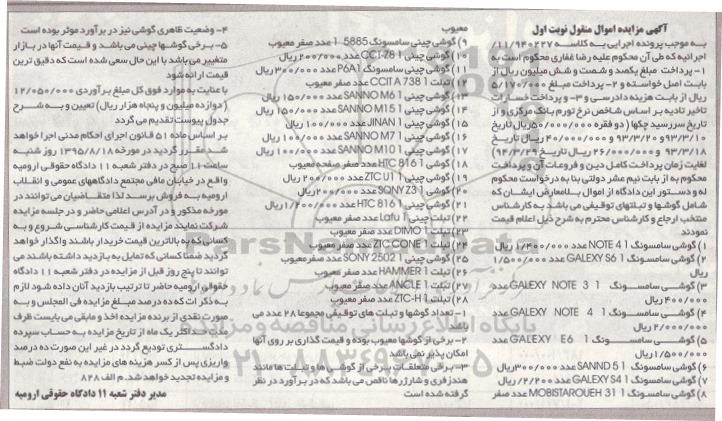 آگهی مزایده اموال منقول نوبت اول
به موجب پرونده اجرایی به کلاسه ۱۱/۹۴۰۲۲۷/
اجرائیه که طی آن محکوم علیه رضا غفاری محکوم است به
۱- پرداخت مبلغ یکصد و شصت و شش میلیون ریال از
بابت اصل خواسته و ۲- پرداخت مبلغ ۵/۱۷۰/۰۰۰
ریال از بابت هزینه دادرسی و ۳- و پرداخت خسارات
تاخیر تادیه بر اساس شاخص نرخ تورم بانک مرکزی و از
تاریخ سررسید چکها (دو فقره ۵۰/۰۰۰/۰۰۰ ریال تاریخ
۹۳/۳/۱۰ و ۹۳/۳/۲۰ و ۴۰/۰۰۰/۰۰۰ ریال تاریخ
۹۳/۳/۱۸ و ۲۶/۰۰۰/۰۰۰ ریال تاریخ ۹۴/۳/۲۹)
لغایت زمان پرداخت کامل دین و فروعات آن و پرداخت
محکوم به از بابت نیم عشر دولتی بنا به درخواست محکوم
له و دستور این دادگاه از اموال بلامعارض ایشان که
شامل گوشیها و تبلتهای توقیفی می باشد به کارشناس
منتخب ارجاع و کارشناس محترم به شرح ذیل اعلام قیمت
نمودند
۱) گوشی سامسونگ NOTE 4 1 عدد ۱/۴۰۰/۰۰۰ ریال
۲) گوشی سامسونگ GALAXY S6 1 عدد ۱/۵۰۰/۰۰۰
ریال
۳) گوشی سامسونگ GALAXY NOTE 3 1 عدد
۴۰۰/۰۰۰ ریال
۴) گوشی سامسونگ GALAXY NOTE 4 1 عدد
۲/۰۰۰/۰۰۰ ریال
۵) گوشی سامسونگ GALAXY E6 1 عدد
۱/۵۰۰/۰۰۰ ریال
۶) گوشی سامسونگ SANND 5 1 عدد ۳۰۰/۰۰۰ ریال
۷) گوشی سامسونگ GALAXY S4 1 عدد ۲/۲۰۰/۰۰۰ ریال
۸) گوشی سامسونگ MOBISTAROUEH 31 1 عدد صفر
معیوب
۹) گوشی چینی سامسونگ 5885 1 عدد صفر معیوب
۱۰) گوشی چینی CCT-78 1 عدد ۲۰۰/۰۰۰ ریال
۱۱) گوشی چینی سامسونگ P6A1 عدد ۳۰۰/۰۰۰ ریال
۱۲) تبلت CCIT A 738 1 عدد صفر معیوب
۱۳) گوشی چینی SANNO M6 1 عدد ۱۵۰/۰۰۰ ریال
۱۴) گوشی چینی SANNO M15 1 عدد ۱۵۰/۰۰۰ ریال
۱۵) گوشی چینی JINAN 1 عدد ۱۰۰/۰۰۰ ریال
۱۶) گوشی چینی SANNO M7 1 عدد ۱۰۰/۰۰۰ ریال
۱۷) گوشی چینی SANNO M10 1 عدد ۱۰۰/۰۰۰ ریال
۱۸) گوشی HTC 816 1 عدد صفر صفحه معیوب
۱۹) گوشی چینی ZTC U1 1 عدد ۲۰۰/۰۰۰ ریال
۲۰) گوشی SONY Z3 1 عدد ۲۰۰/۰۰۰ ریال
۲۱) گوشی HTC 816 1 عدد ۱/۲۰۰/۰۰۰ ریال
۲۲) تبلت چینی Lafu 1 عدد صفر معیوب
۲۳) تبلت DIMO 1 عدد صفر معیوب
۲۴) تبلت ZTC CONE 1 عدد صفر معیوب
۲۵) گوشی چینی SONY 2502 1 عدد صفر معیوب
۲۶) تبلت HAMMER 1 عدد صفر معیوب
۲۷) تبلت ANGLE 1 عدد صفر معیوب
۲۸) تبلت ZTC-H 1 عدد صفر معیوب
۱- تعداد گوشیها و تبلت های توقیفی مجموعا ۲۸ عدد می
باشد
۲- برخی از گوشیها معیوب بوده و قیمت گذاری بر روی آنها
امکان پذیر نمی باشد
۳- برخی متعلقات برخی از گوشی ها و تبلیت ها مانند
هندزفری و شارژرها ناقص می باشد که در برآورد در نظر
گرفته شده است
۴- وضعیت ظاهری گوشی نیز در برآورد موثر بوده است
۵- برخی گوشیها چینی می باشد و قیمت آنها در بازار
متغییر می باشد با این حال سعی شده است که دقیق ترین
قیمت ارائه شود
با عنایت به موارد فوق کل مبلغ برآوردی ۱۲/۰۵۰/۰۰۰
(دوازده میلیون و پنجاه هزار ریال) تعیین و به شرح
جدول پیوست تقدیم می گردد
بر اساس ماده ۵۱ قانون اجرای احکام مدنی اجرا خواهد
شد مقرر گردید در مورخه ۱۳۹۵/۸/۱۸ روز شنبه
ساعت ۱۱ صبح در دفتر شعبه ۱۱ دادگاه حقوقی ارومیه
واقع در خیابان مافی مجتمع دادگاههای عمومی و انقلاب
ارومیه به فروش برسد لذا متقاضیان می توانند در
مورخه مذکور و در آدرس اعلامی حاضر و در جلسه مزایده
شرکت نمایند مزایده از قیمت کارشناسی شروع و به
کسانی که به بالاترین قیمت خریدار باشند واگذار خواهد
گردید ضمنا کسانی که تمایل به بازدید داشته باشند می
توانند تا پنج روز قبل از مزایده در دفتر شعبه ۱۱ دادگاه
حقوقی ارومیه حاضر تا ترتیب بازدید آنان داده شود لازم
به ذکر است که ده درصد مبلغ مزایده فی المجلس و به
صورت نقدی از برنده مزایده اخذ و مابقی می بایست ظرف
مدت حداکثر یک ماه از تاریخ مزایده به حساب سپرده
دادگستری تودیع گردد در غیر این صورت ده درصد
واریزی پس از کسر هزینه های مزایده به نفع دولت ضبط
و مزایده تجدید خواهد شد. م الف ۸۲۸
مدیر دفتر شعبه ۱۱ دادگاه حقوقی ارومیه
ParsNamadData
پایگاه اطلاع رسانی مناقصه و مزایده
۰۲۱-۸۸۳۴۹۶۷۰-۵